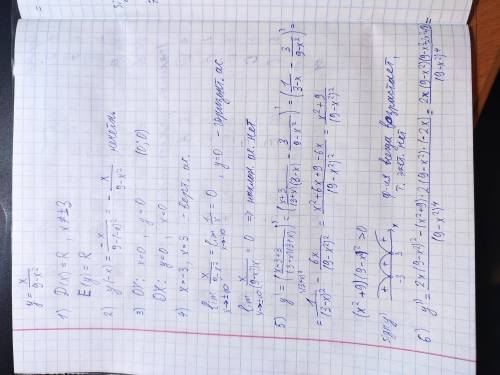 y = x/(9-x²)
1) D(x) = R, x ≠ ±3
E(y) = R
2) y(-x) = -x/(9-(-x)²) = - x/(9-x²) нечетн.
3) OY: x=0, y=0 (0;0)
OX: y=0, x=0
4) x=-3, x=3 - верт. ас.
lim x→±∞ x/(9-x²) = lim x→±∞ = 0, y=0 - горизонт. ас.
lim x→±∞ x/(9-x²)x = 0 ⇒ наклон. ас. нет
5) y' = ((x+3-3)/((3-x)(3+x)))' = ((x+3)/((3+x)(3-x)) - 3/(9-x²))' = (1/(3-x) - 3/(9-x²))' =
= 1/(3-x)² - 6x/(9-x²)² = (x²+6x+9-6x)/(9-x²)² = (x²+9)/(9-x²)²
(x²+9)(9-x²)² > 0
sgn y' + + + -3 3 x ф-ия всегда возрастает,
т. экст. нет
6) y'' = (2x(9-x²)² - (x²+9)·2(9-x²)·(-2x))/(9-x²)⁴ =